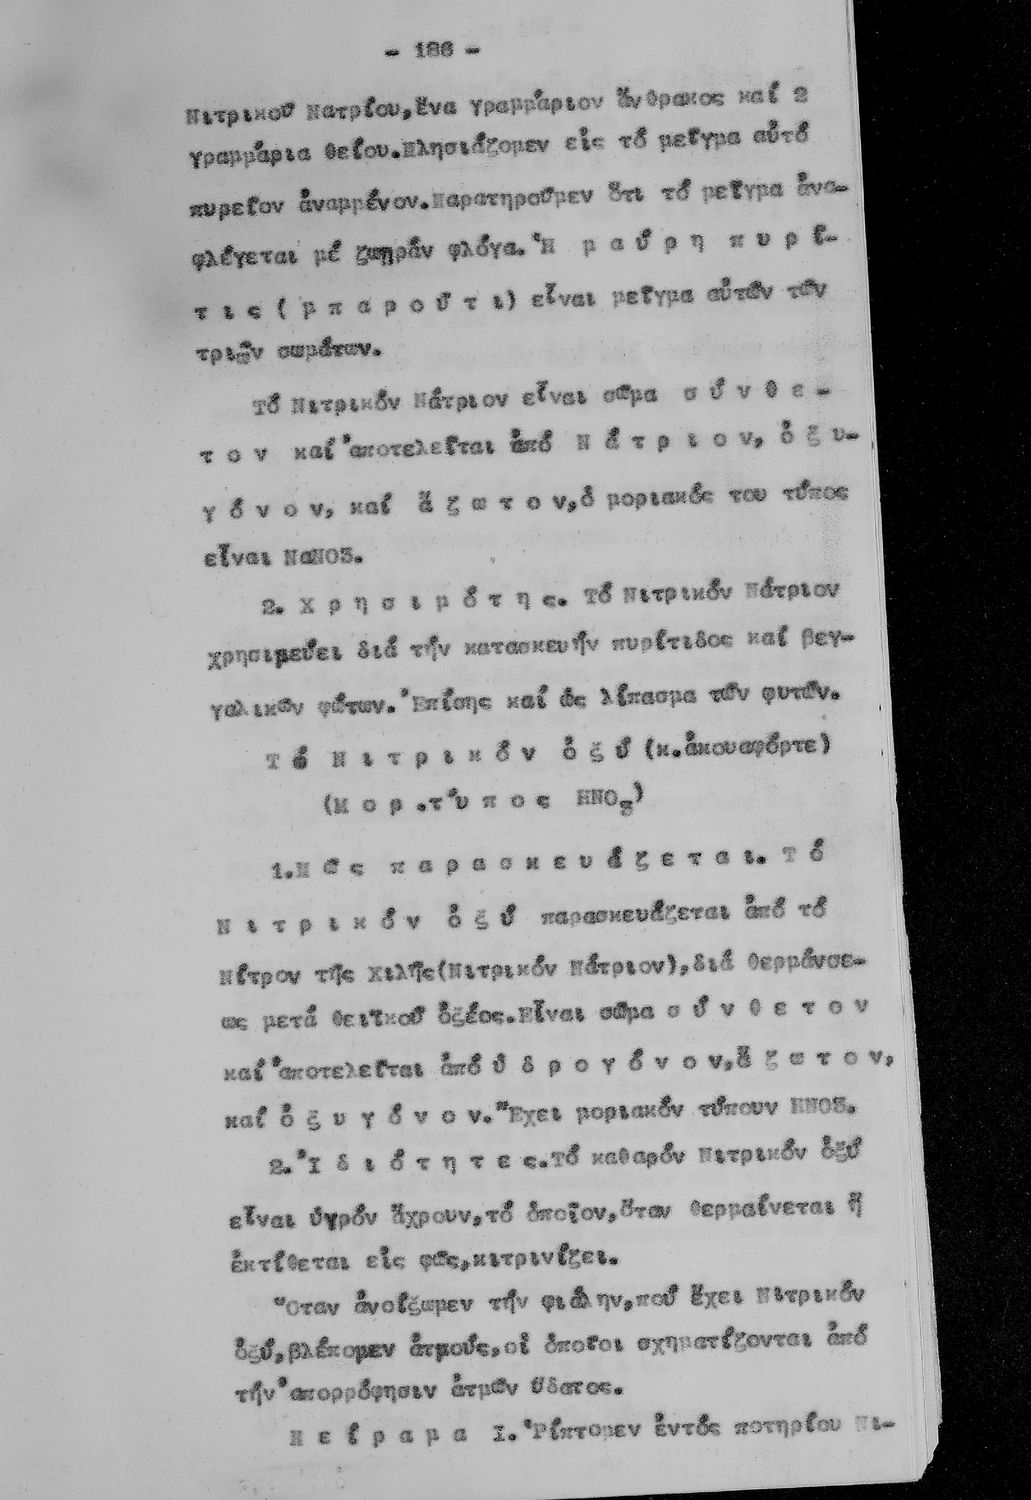 - 186 -
Νιτρικοῦ Νατρίου,ἕνα γραμμάριον ἄνθρακος καί 2
γραμμάρια θείου.Πλησιάζομεν εἰς τό μεῖγμα αὐτό
πυρεῖον ἀναμμένον.Παρατηροῦμεν ὅτι τό μεῖγμα ἀνα-
φλέγεται μέ ζωηράν φλόγα. Ἡ μ α ύ ρ η π υ ρ ῖ-
τ ι ς ( μ π α ρ ο ύ τ ι) εἶναι μεῖγμα αὐτῶν τῶν
τριῶν σωμάτων.
Τό Νιτρικόν Νάτριον εἶναι σῶμα σ ύ ν θ ε -
τ ο ν καί ἀποτελεῖται ἀπό Ν ά τ ρ ι ο ν, ὀ ξ υ-
γ ό ν ο ν, καί ἄ ζ ω τ ο ν,ὁ μοριακός του τύπος
εἶναι ΝaΝΟ3.
2. Χ ρ η σ ι μ ό τ η ς. Τό Νιτρικόν Νάτριον
χρησιμεύει διά τήν κατασκευήν πυρίτιδος καί βεγ-
γαλικῶν φώτων. Ἐπίσης καί ὡς λίπασμα τῶν φυτῶν.
Τ ό Ν ι τ ρ ι κ ό ν ὀ ξ ύ (κ.ἀκουαφόρτε)
(Μ ο ρ .τ ύ π ο ς ΗΝΟ3)
1.Π ῶ ς π α ρ α σ κ ε υ ά ζ ε τ α ι. Τ ό
Ν ι τ ρ ι κ ό ν ὀ ξ ύ παρασκευάζεται ἀπό τό
Νίτρον τῆς Χιλῆς(Νιτρικόν Νάτριον),διά θερμάνσε-
ως μετά θειϊκοῦ ὀξέος.Εἶναι σῶμα σ ύ ν θ ε τ ο ν
καί ἀποτελεῖται ἀπό ὑ δ ρ ο γ ό ν ο ν,ἄ ζ ω τ ο ν,
καί ὀ ξ υ γ ό ν ο ν. Ἔχει μοριακόν τύπουν ΗΝΟ3.
2. Ἰ δ ι ό τ η τ ε ς.Τό καθαρόν Νιτρικόν ὀξύ
εἶναι ὑγρόν ἄχρουν,τό ὁποῖον,ὅταν θερμαίνεται ἤ
ἐκτίθεται εἰς φῶς,κιτρινίζει.
Ὅταν ἀνοίξωμεν τήν φιάλην,πού ἔχει Νιτρικόν
ὀξύ,βλέπομεν ἀτμούς,οἱ ὁποῖοι σχηματίζονται ἀπό
τήν ἀπορρόφησιν ἀτμῶν ὕδατος.
Π ε ί ρ α μ α Ι. Ρίπτομεν ἐντός ποτηρίου Νι-